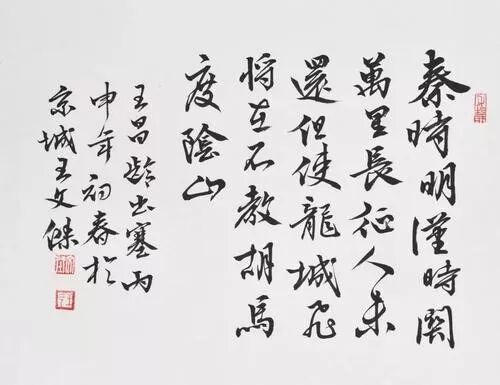 秦時明漢時関
萬里長征人未
還但使龍城飛
将在不教胡馬
度陰山
王昌齡出塞丙
申年初春於
京城王文傑